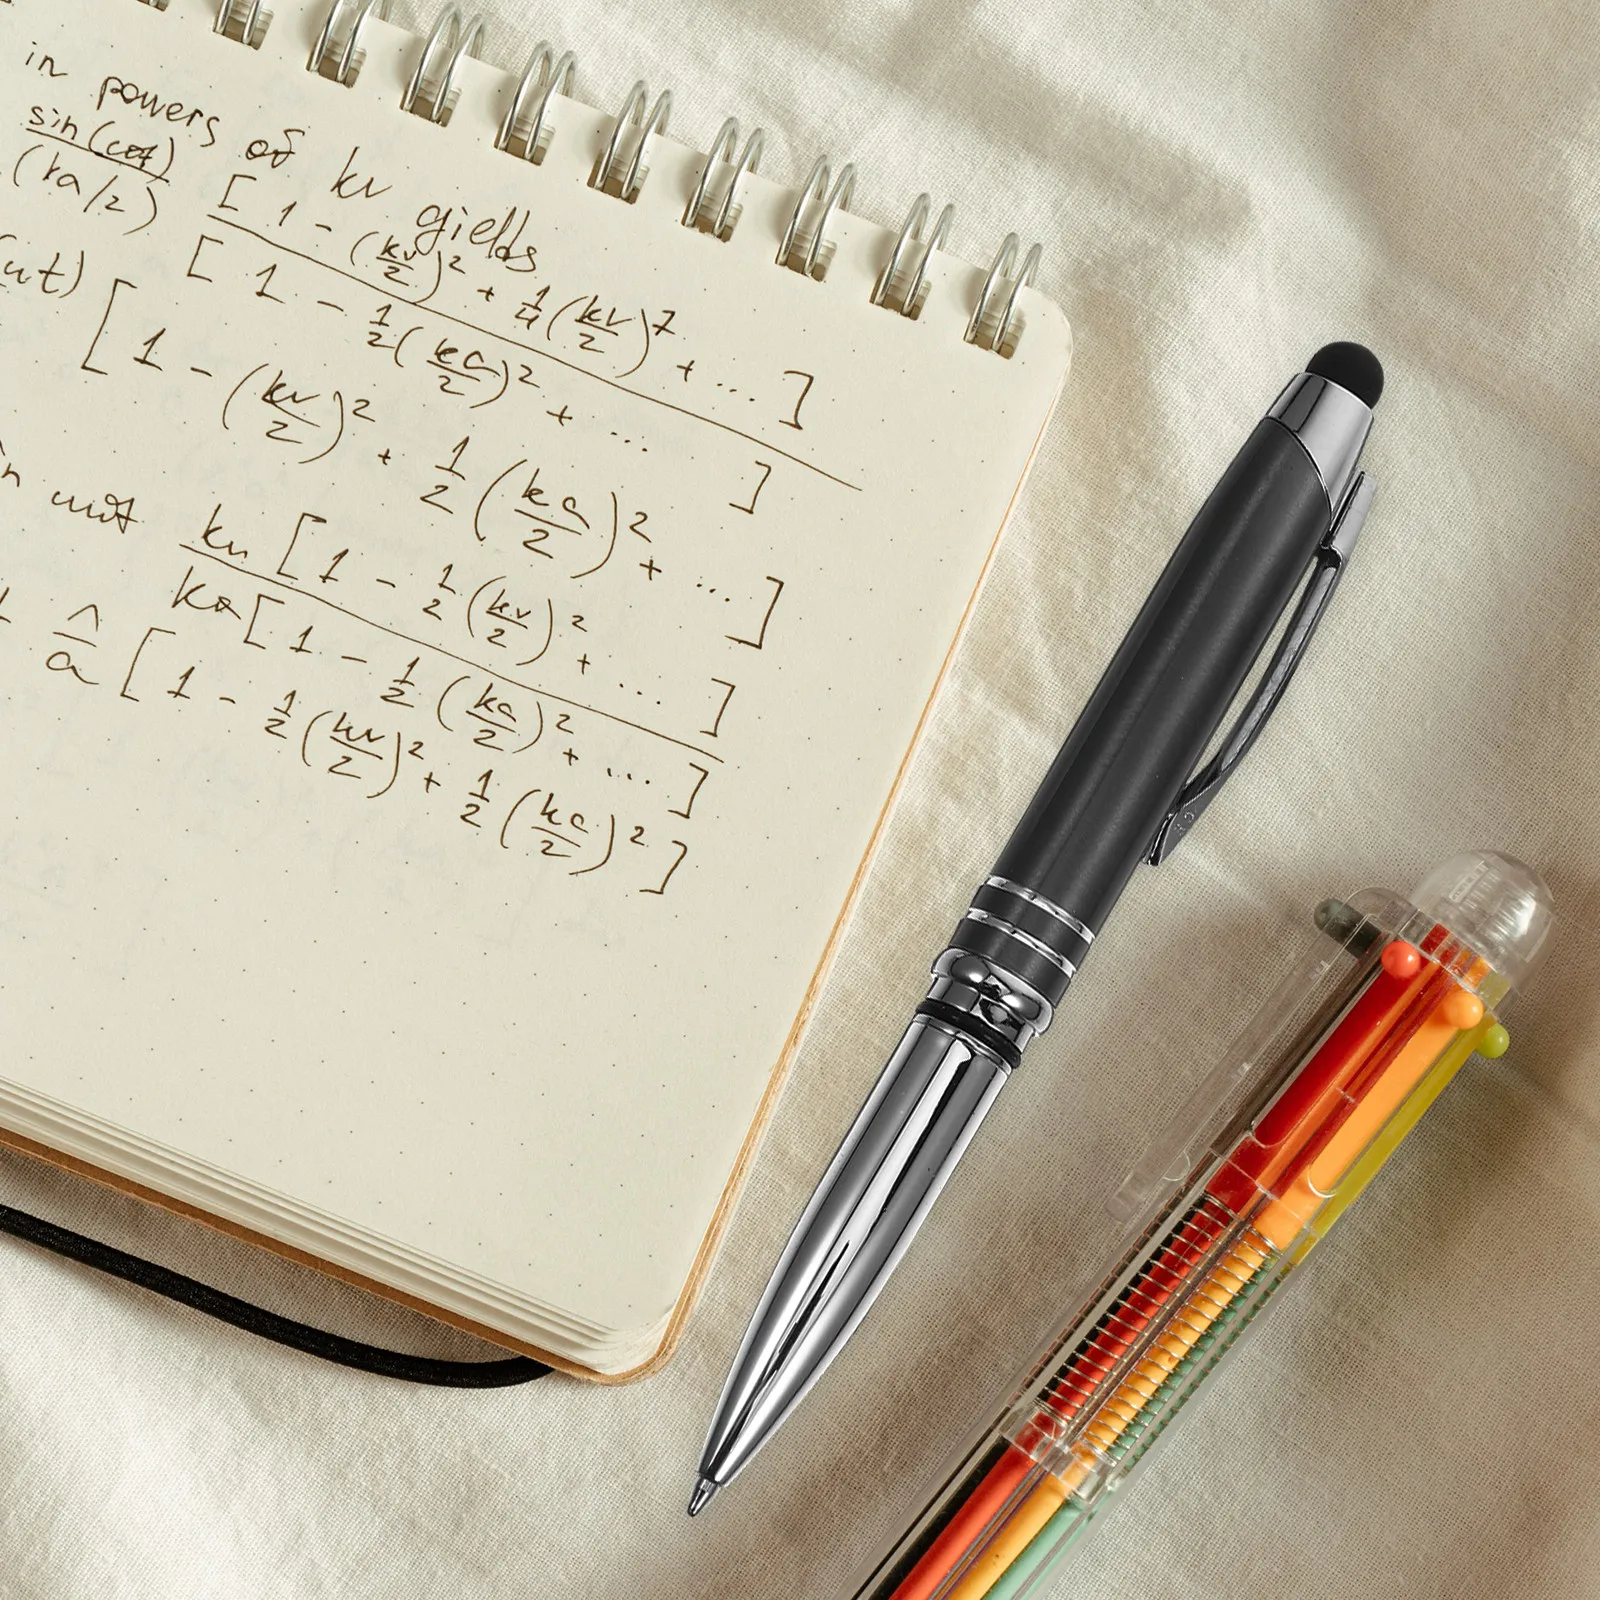 in powers of kv gields
sin(cot) [ 1 - (kv/2)² + 1/4 (kv/2)⁷ + ... ]
(ka/2) [ 1 - 1/2 (ka/2)² + ... ]
ut) [ 1 - (kv/2)² + 1/2 (ka/2)² + ... ]
n wt kv [ 1 - 1/2 (kv/2)² + ... ]
ka [ 1 - 1/2 (ka/2)² + ... ]
^/a [ 1 - 1/2 (kv/2)² + 1/2 (ka/2)² ]